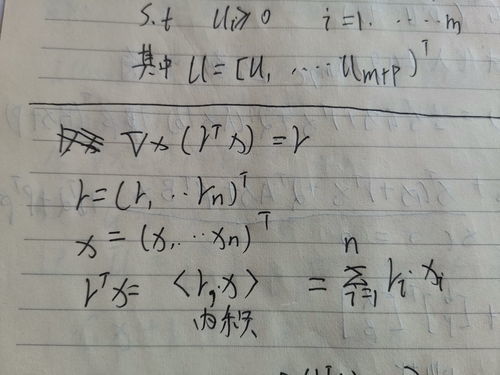 s.t  u_i ≥ 0  i=1. ..... m
其中 U = [u_1 ..... u_{m+p})^T
∇x (r^T x) = r
r = (r_1 ... r_n)^T
x = (x_1 ... x_n)^T
r^T x = <r, x> = \sum_{i=1}^{n} r_i · x_i
内积